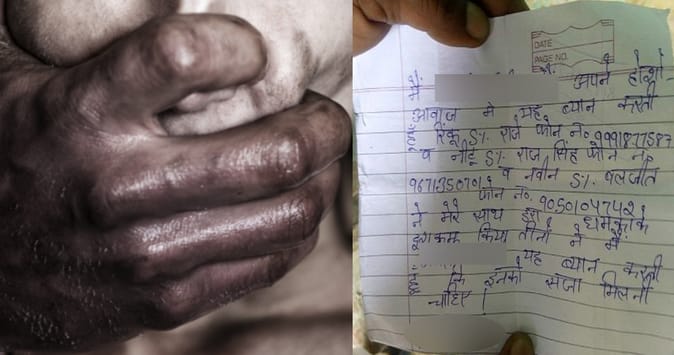 DATE
PAGE NO.
मैं अपने होशो-
आवाज मे यह ब्यान करती
हूँ रिंकू S/. राजे फोन नं० 9991877587
व नीटू S/. राज सिंह फोन नं०
9671350701 व नवीन S/. बलजीत
फोन नं० 9050104742
ने मेरे साथ डरा धमकाके
कुकर्म किया तीनो ने मैं
यह ब्यान करती
हूँ कि इनको सजा मिलनी
चाहिए।